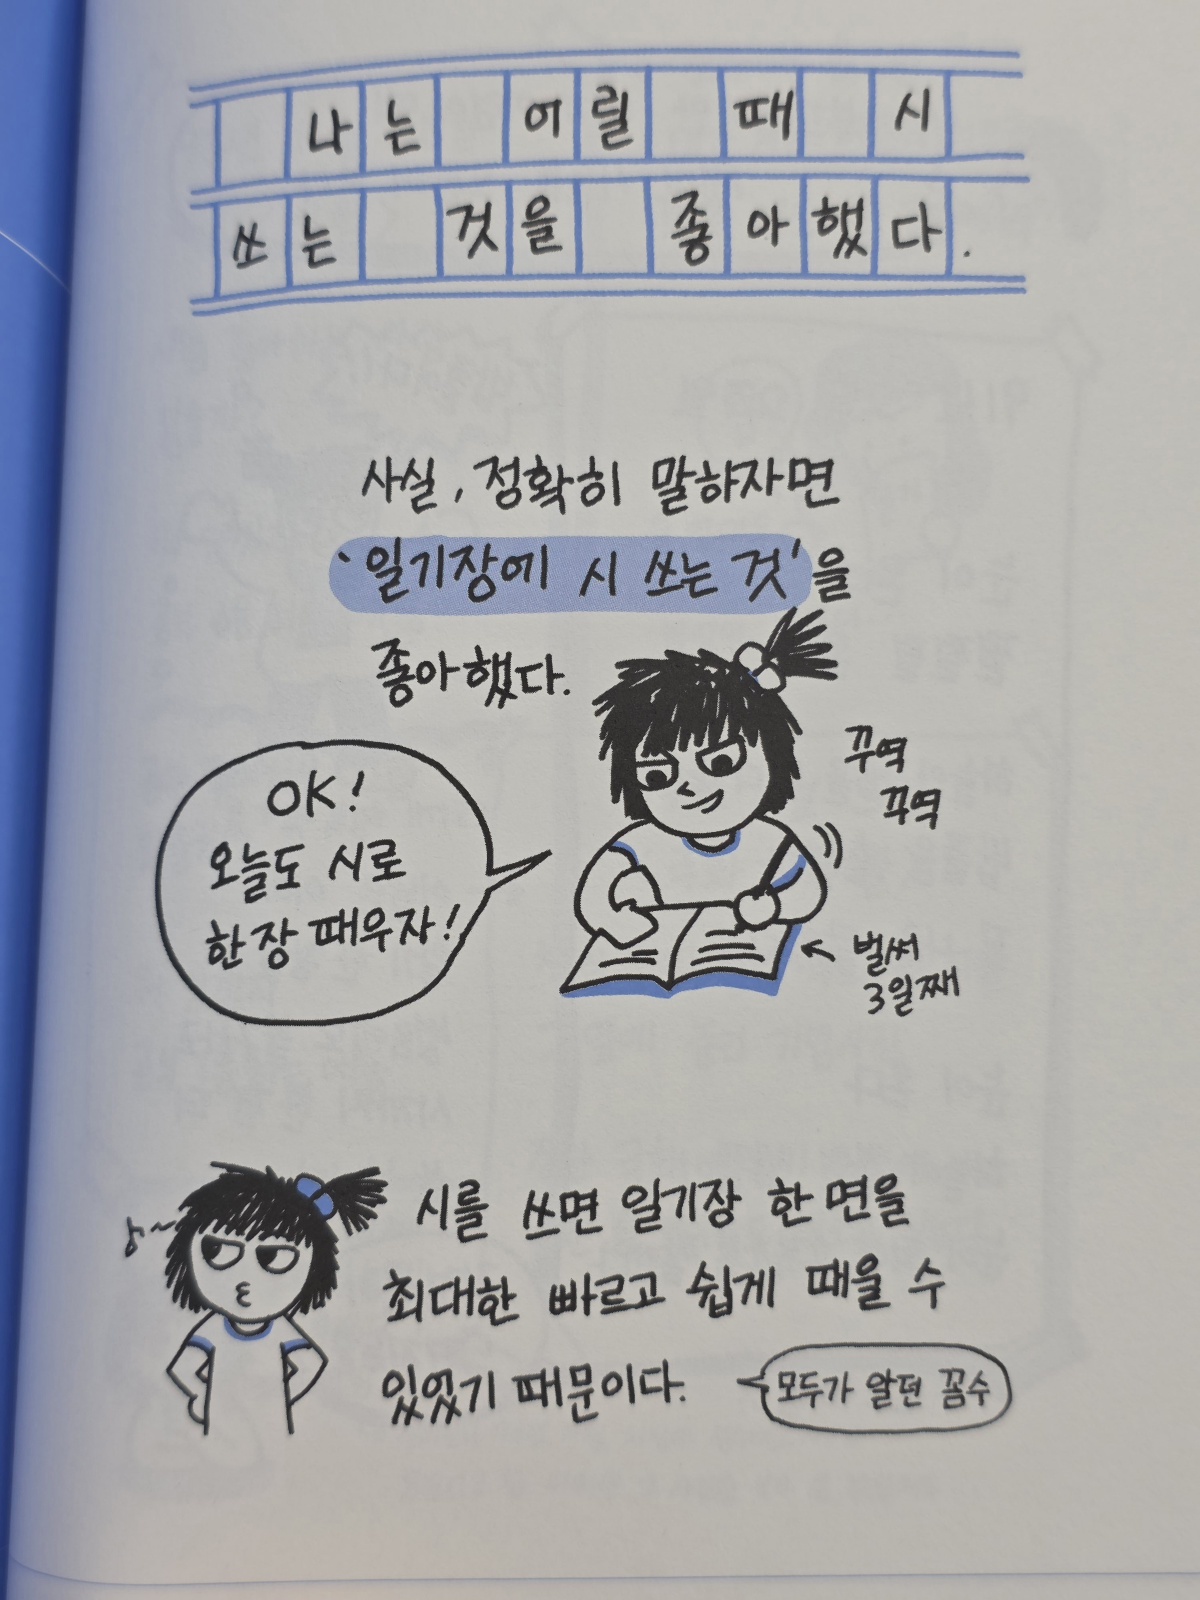 나는 어릴 때 시
쓰는 것을 좋아했다.
사실, 정확히 말하자면
'일기장에 시 쓰는 것'을
좋아했다.
OK!
오늘도 시로
한 장 때우자!
꾸역
꾸역
벌써
3일째
시를 쓰면 일기장 한 면을
최대한 빠르고 쉽게 때울 수
있었기 때문이다.
모두가 알던 꼼수